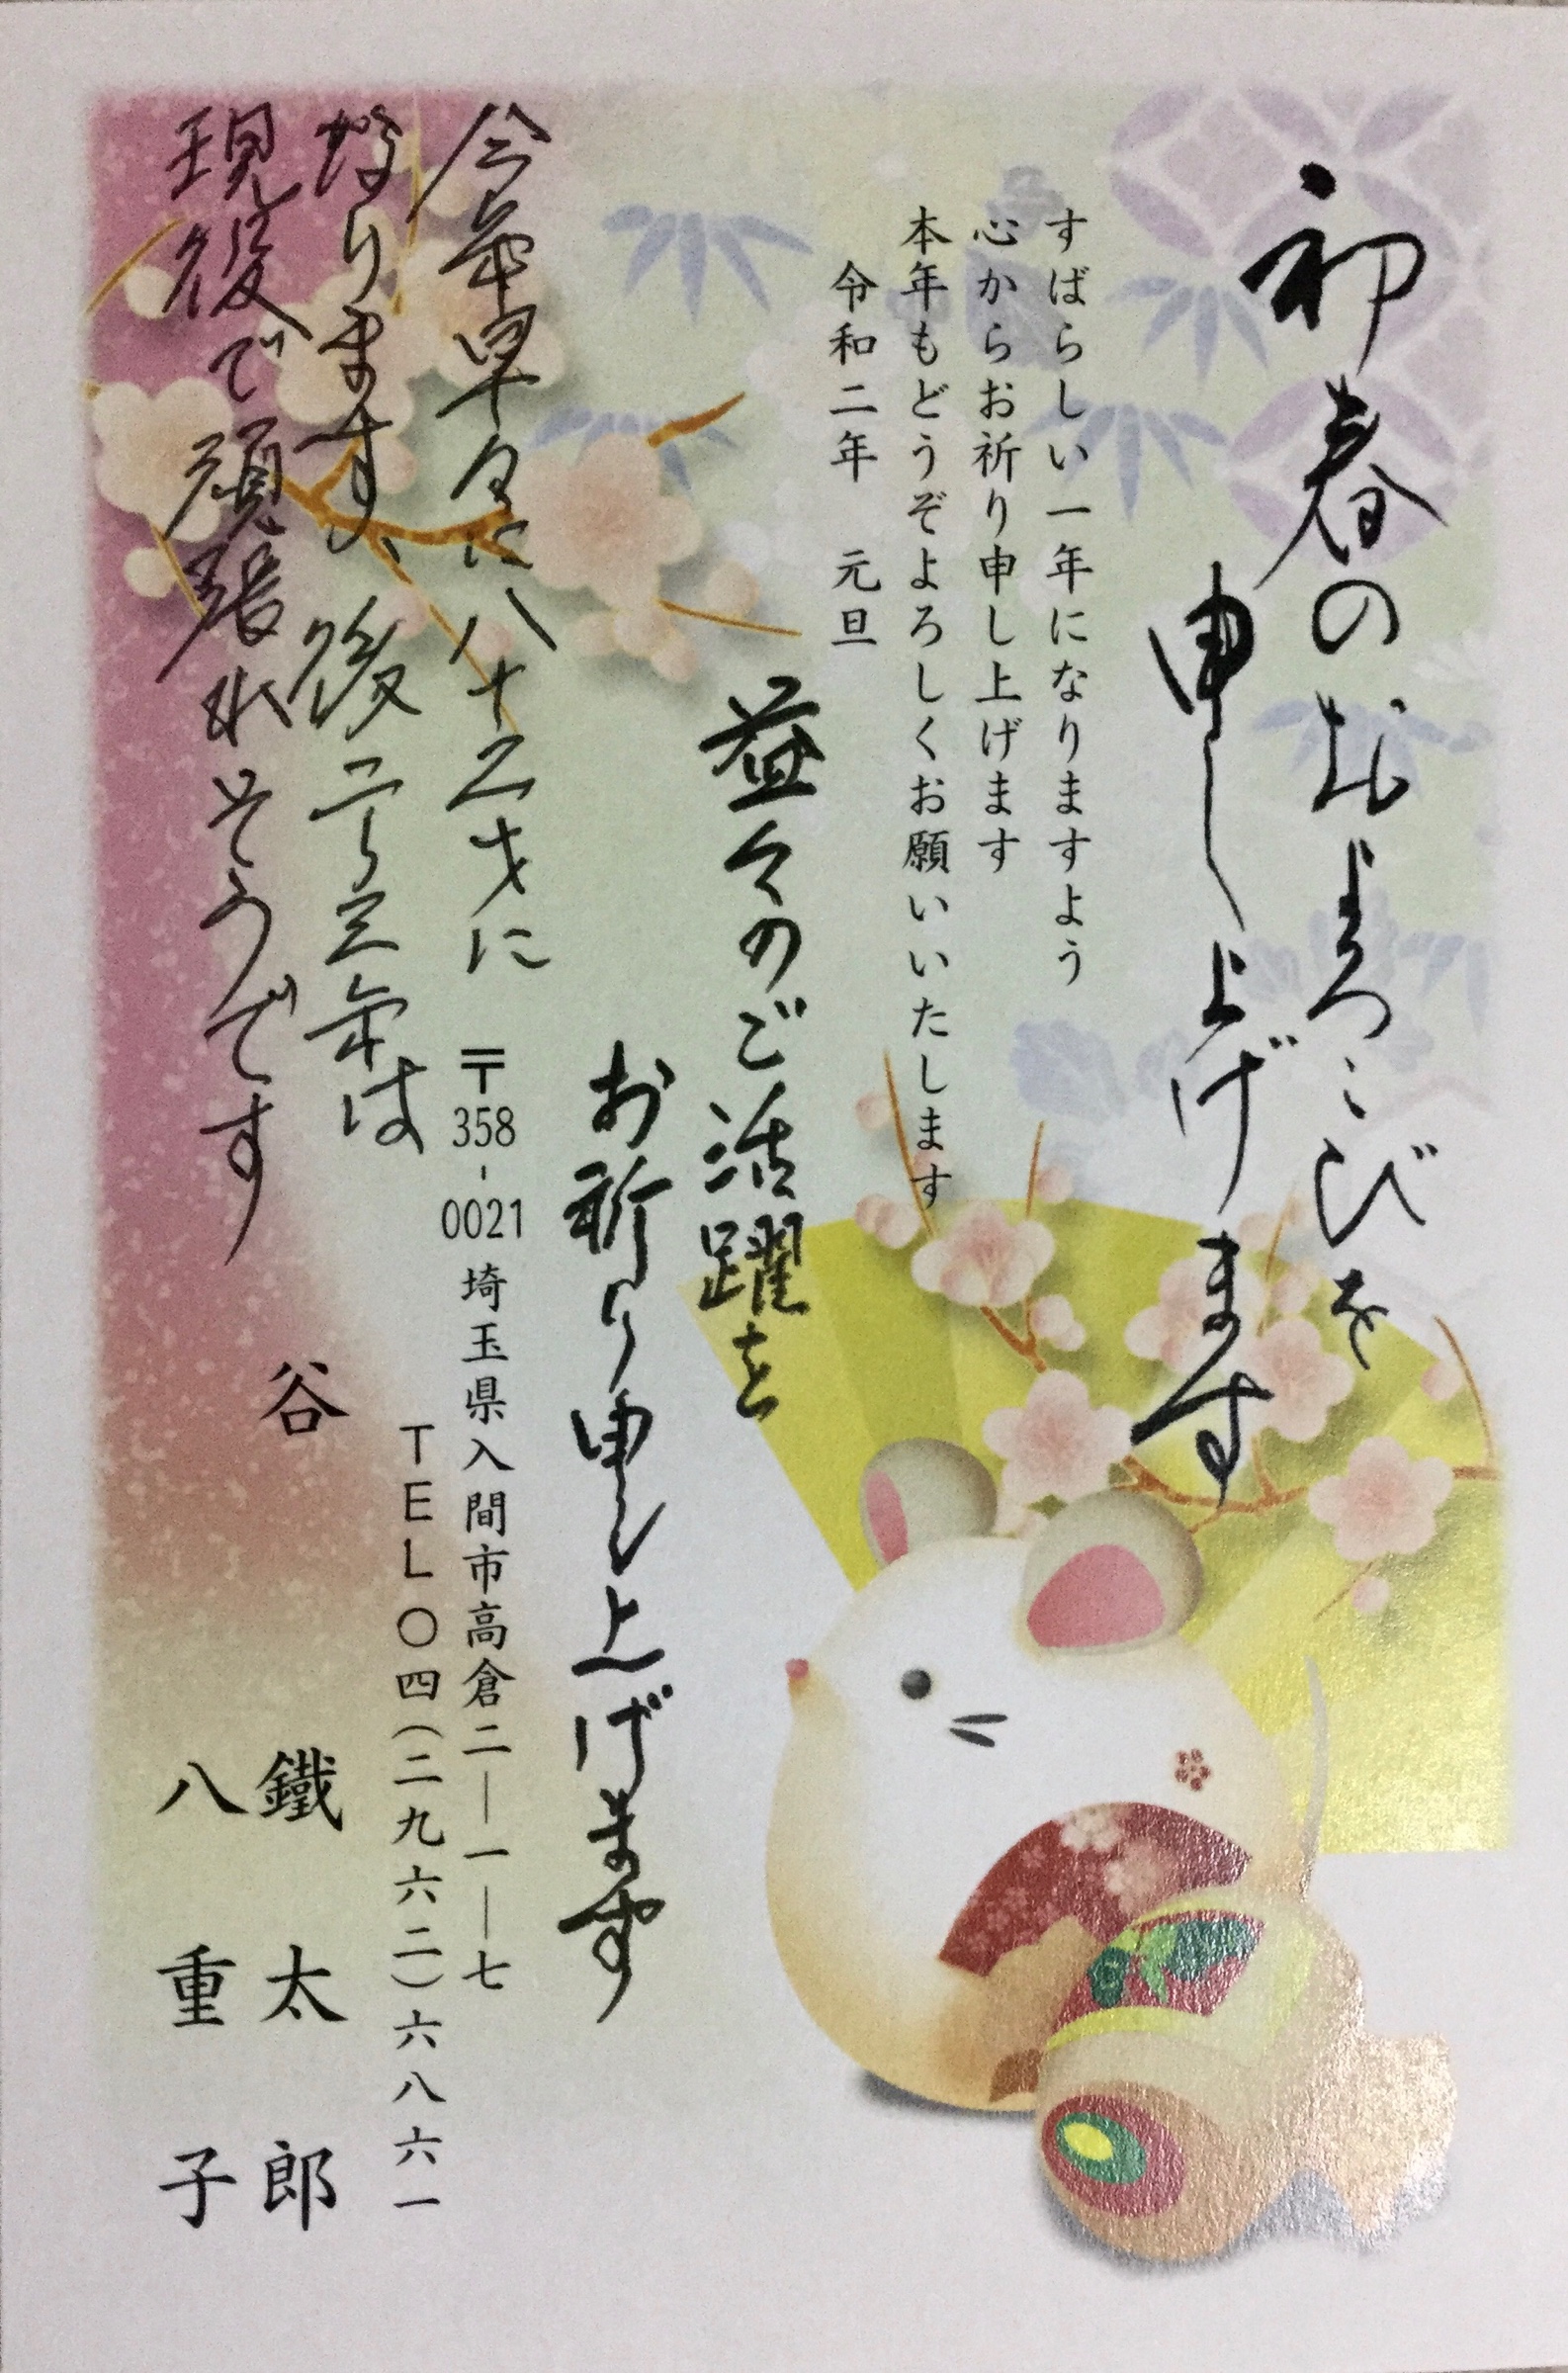 初春のおよろこびを
申し上げます
すばらしい一年になりますよう
心からお祈り申し上げます
本年もどうぞよろしくお願いいたします
令和二年 元旦
益々のご活躍を
お祈り申し上げます
今年早々に八十二才に
なります、後二、三年は
現役で頑張れそうです
〒358-0021 埼玉県入間市高倉二―一―七
TEL〇四(二九六二)六八六一
谷 鐵太郎
八重子